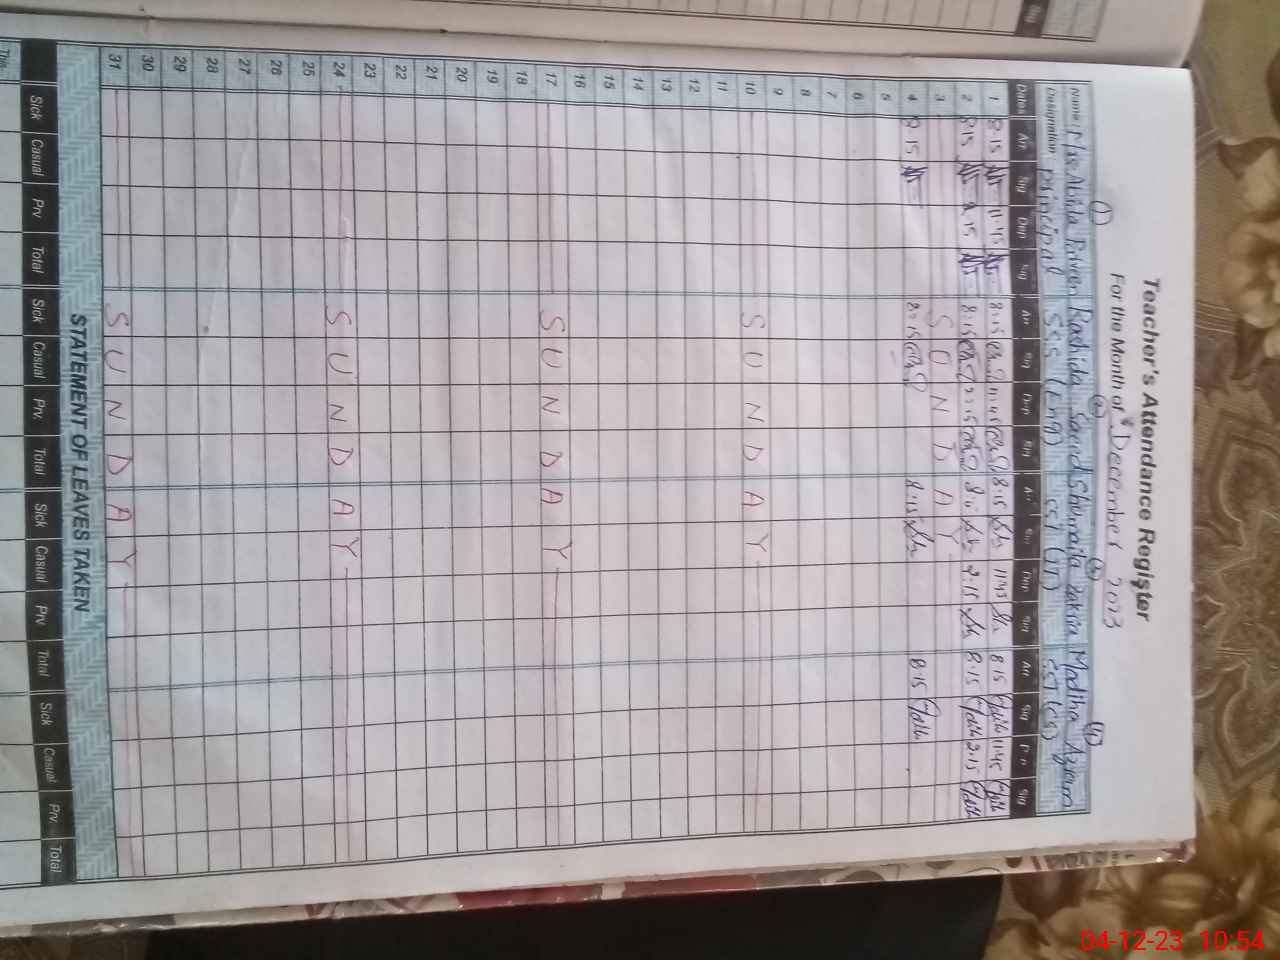 Teacher's Attendance Register
For the Month of December 2023
1 2 3 4
Name: Abida Parveen Rashida Saeed Shumaila Zakria Madiha Azeem
Designation Principal SSS (Eng) SST (IT) SST (CS)
Dates Arr Sig Dep Sig Arr Sig Dep Sig Arr Sig Dep Sig Arr Sig Dep Sig
1 8:15 11:45 8:15 11:45 8:15 11:45 8:15 11:45
2 8:15 2:15 8:15 2:15 8:15 2:15 8:15 2:15
3 SUNDAY
4 8:15 8:15 8:15 8:15
5
6
7
8
9
10 SUNDAY
11
12
13
14
15
16
17 SUNDAY
18
19
20
21
22
23
24 SUNDAY
25
26
27
28
29
30
31 SUNDAY
STATEMENT OF LEAVES TAKEN
Sick Casual Prv Total Sick Casual Prv. Total Sick Casual Prv Total Sick Casual Prv Total
This
Sig
04-12-23 10:54